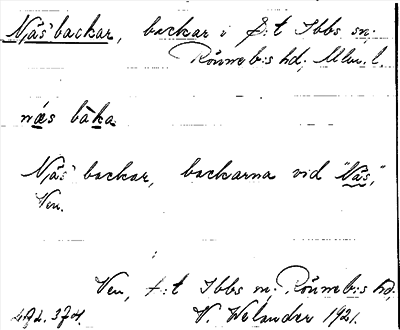 Näs backar, backar i S:t Ibbs sn,
Rönneb:s hd, Mlm. l.
næs bàka
Näs backar, backarna vid "Näs,"
Ven.
Ven, S:t Ibbs sn, Rönneb:s hd,
N. Welander 1921.